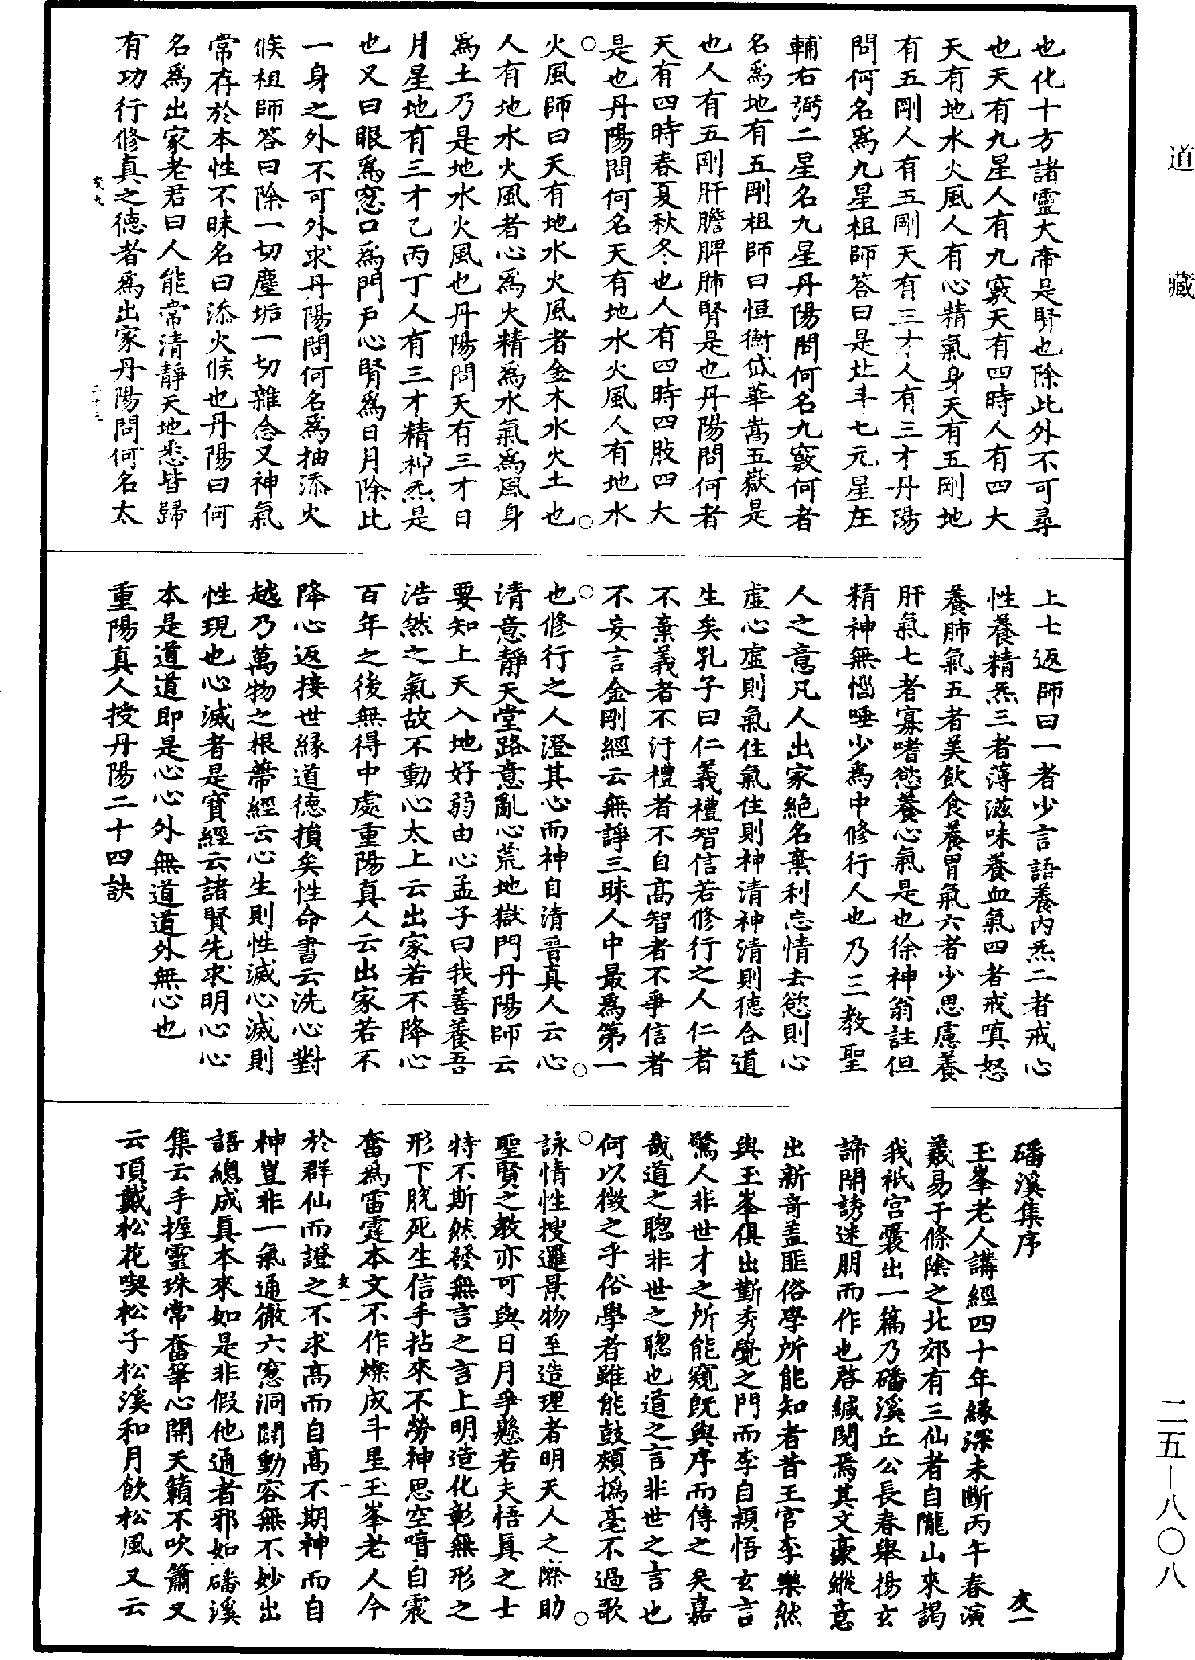 道藏
也化十方諸靈大帝是腎也除此外不可尋
也天有九星人有九竅天有四時人有四大
天有地水火風人有心精氣身天有五剛地
有五剛人有五剛天有三才人有三才丹陽
問何名爲九星祖師答曰是北斗七元星左
輔右弼二星名九星丹陽問何名九竅何者
名爲地有五剛祖師曰恒衡岱華嵩五嶽是
也人有五剛肝膽脾肺腎是也丹陽問何者
天有四時春夏秋冬也人有四時四肢四大
是也丹陽問何名天有地水火風人有地水
火風師曰天有地水火風者金木水火土也
人有地水火風者心爲火精爲水氣爲風身
爲土乃是地水火風也丹陽問天有三才日
月星地有三才乙丙丁人有三才精神炁是
也又曰眼爲窓口爲門戶心腎爲日月除此
一身之外不可外求丹陽問何名爲抽添火
候祖師答曰除一切塵垢一切雜念又神氣
常存於本性不昧名曰添火候也丹陽曰何
名爲出家老君曰人能常清靜天地悉皆歸
有功行修真之德者爲出家丹陽問何名太
上七返師曰一者少言語養內炁二者戒心
性養精炁三者薄滋味養血氣四者戒嗔怒
養肺氣五者美飲食養胃氣六者少思慮養
肝氣七者寡嗜慾養心氣是也徐神翁註但
精神無惱唾少爲中修行人也乃三教聖
人之意凡人出家絕名棄利忘情去慾則心
虛心虛則氣住氣住則神清神清則德合道
生矣孔子曰仁義禮智信若修行之人仁者
不棄義者不汙禮者不自高智者不爭信者
不妄言金剛經云無諍三昧人中最爲第一
也修行之人澄其心而神自清晉真人云心
清意靜天堂路意亂心荒地獄門丹陽師云
要知上天入地好弱由心孟子曰我善養吾
浩然之氣故不動心太上云出家若不降心
百年之後無得中處重陽真人云出家若不
降心返接世緣道德損矣性命書云洗心對
越乃萬物之根蔕經云心生則性滅心滅則
性現也心滅者是寳經云諸賢先求明心心
本是道道即是心心外無道道外無心也
重陽真人授丹陽二十四訣
磻溪集序
友一
玉峯老人講經四十年緣深未斷丙午春演
羲易于條陰之北郊有三仙者自隴山來謁
我祇宮囊出一篇乃磻溪丘公長春舉揚玄
諦開誘迷朋而作也啓緘閱焉其文豪縱意
出新奇蓋匪俗學所能知者昔王官李樂然
與玉峯俱出勤秀覺之門而李自穎悟玄言
驚人非世才之所能窺旣與序而傳之矣嘉
哉道之聰非世之聰也道之言非世之言也
何以徵之乎俗學者雖能鼓頰撝毫不過歌
詠情性搜邏景物至造理者明天人之際助
聖賢之教亦可與日月爭懸若夫悟真之士
特不斯然發無言之言上明造化彰無形之
形下脫死生信手拈來不勞神思空喑自震
奮爲雷霆本文不作燦成斗星玉峯老人今
於群仙而證之不求高而自高不期神而自
神豈非一氣通徹六窓洞闢動容無不妙出
語總成真本來如是非假他通者邪如磻溪
集云手握靈珠常奮筆心開天籟不吹簫又
云頂戴松花喫松子松溪和月飲松風又云
二五—八〇八